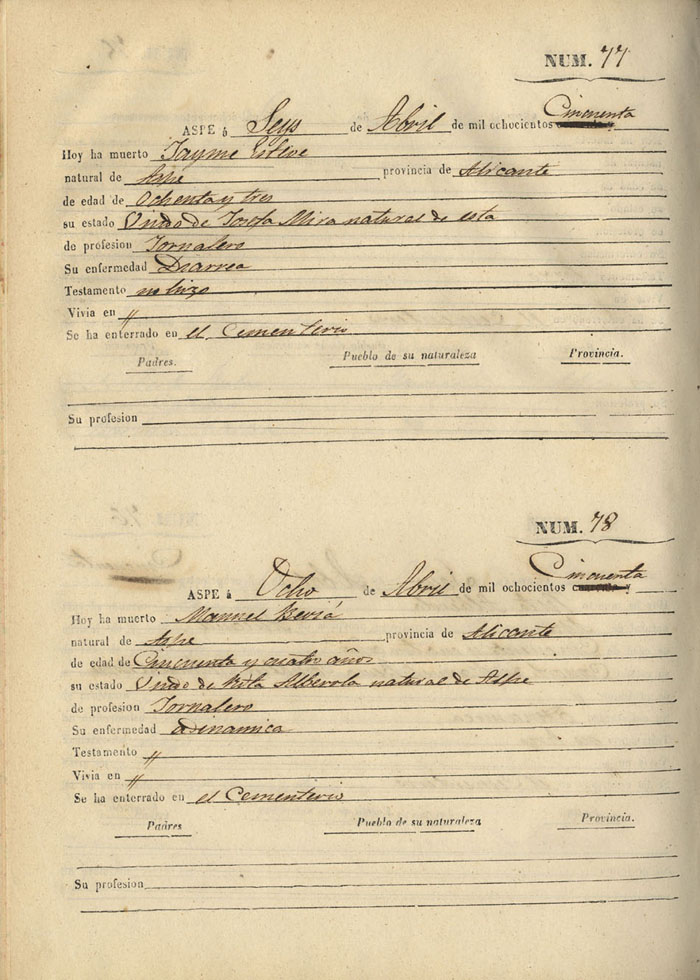 NUM. 77
Cincuenta
ASPE á Seys de Abril de mil ochocientos
Hoy ha muerto Jayme Esteve
natural de Aspe provincia de Alicante
de edad de Ochenta y tres
su estado Viudo de Josefa Mira natural de esta
de profesion Jornalero
Su enfermedad Diarrea
Testamento no hizo
Vivia en "
Se ha enterrado en el Cementerio
Padres. Pueblo de su naturaleza Provincia.
Su profesion
NUM. 78
Cincuenta
ASPE á Ocho de Abril de mil ochocientos
Hoy ha muerto Manuel Beviá
natural de Aspe provincia de Alicante
de edad de Cincuenta y cuatro años
su estado Viudo de Rita Alberola natural de Aspe
de profesion Jornalero
Su enfermedad adinamica
Testamento "
Vivia en "
Se ha enterrado en el Cementerio
Padres Pueblo de su naturaleza Provincia.
Su profesion